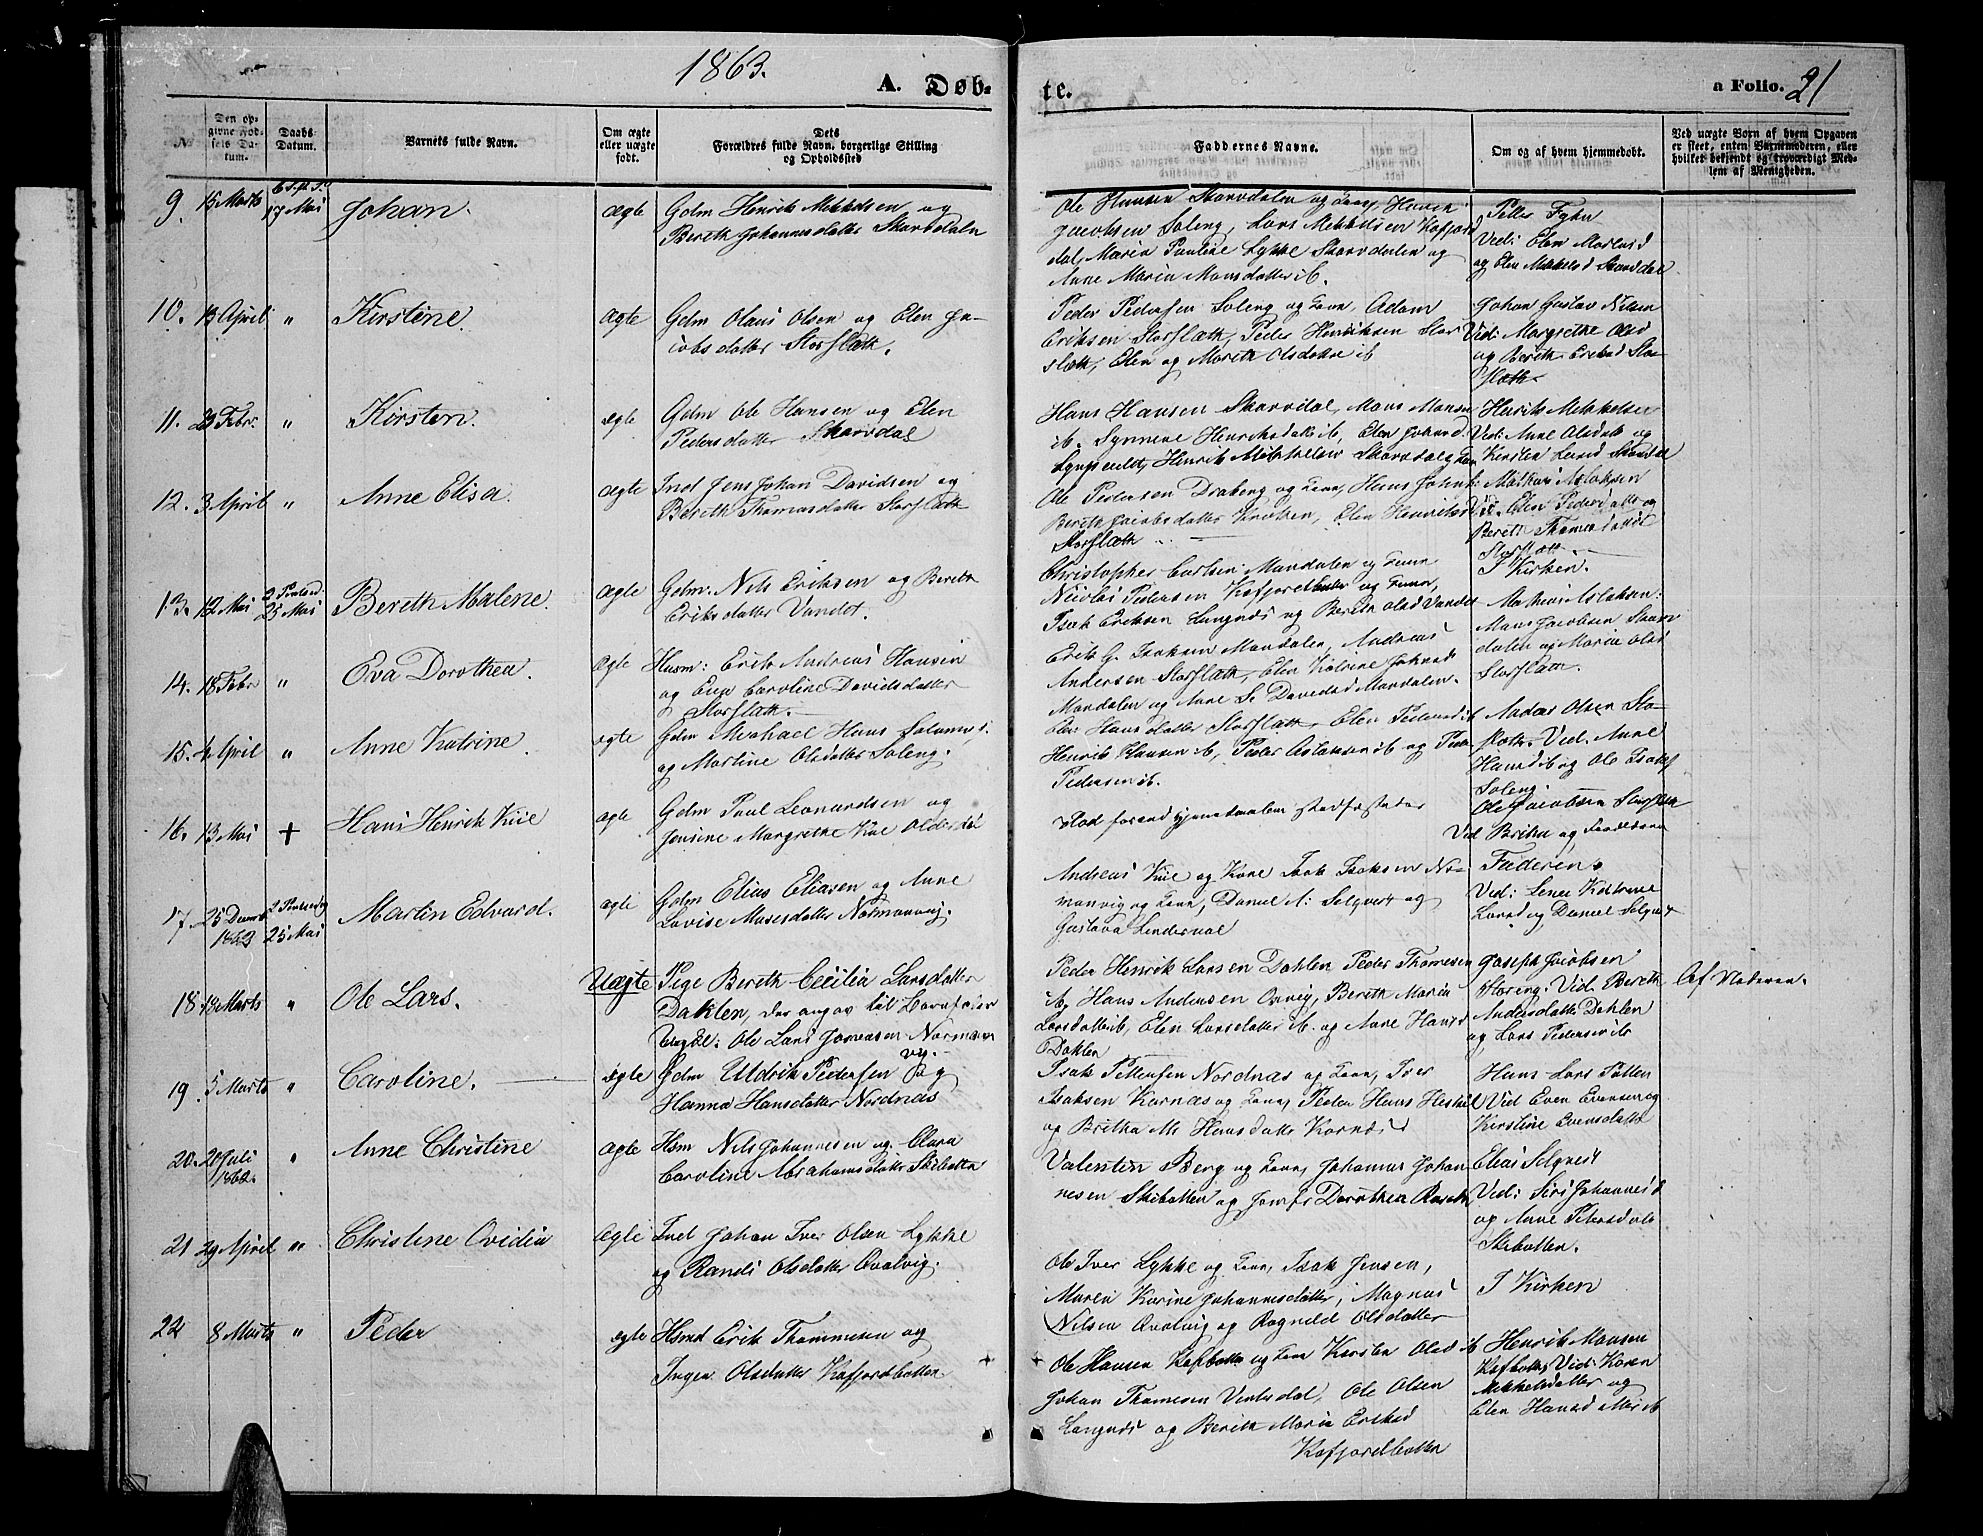 1863.
A. Døb-
te.
a Folio. 21
No
Den op-
givne Fød-
sels Da-
tum.
Daabs
Datum.
Barnets fulde Navn.
Om ægte
eller uægte
født.
Dets
Forældres fulde Navn, borgerlige Stilling
og Opholdssted
Faddernes Navne.
Om og af hvem hjemmedøbt.
Ved uægte Børn af hvem Opgaven
er skeet, enten Barnemoderen, eller
hvilket bekjendt og troværdigt Med-
lem af Menigheden.
9. 15 Marts
17 Mai
Johan.
ægte
Gdm Henrik Mekkelsen og
Bereth Johannesdatter Skarvdaln
Ole Hansen Skarvdalen og Kone, Henrik
Jacobsen Soleng, Lars Mekkelsen Kafjord
dal, Maria Pauline Lykke Skarvdalen og
Anne Maria Monsdatter ib.
Peder
Ved: Elen
og Elen Mekkelsd Skarvdal
10. 13 April "
Kirstine.
ægte
Gdm Olaus Olsen og Elen Ja-
cobsdatter Storslæth.
Peder Pedersen Soleng og Kone, Adam
Eriksen Storslæth, Peder Henriksen Stor
slæth, Elen og Mareth Olsdatter ib
Johan Gustav Nilsen
Ved: Margrethe Olsd
og Bereth Eriksd Stor
slæth.
11. 23 Febr. "
Kirsten.
ægte
Gdm Ole Hansen og Elen
Pedersdatter Skarvdal
Hans Hansen Skarvdal, Mons Monsen
ib. Synneve Henriksdatter ib, Elen Johansd
Lyngseidet, Henrik Mikkelsen Skarvdal
Henrik Mekkelsen
Ved: Anne Olsdatt og
Kirsten Larsd Skarvdal
12. 3 April "
Anne Elisa.
ægte
Ind Jens Johan Davidsen og
Bereth Thomasdatter Storslæth
Ole Pedersen Draberg og Kone, Hans Johns
Bereth Jacobsdatter Kroken, Elen Henriksd
Storslæth
Mathias Aslaksen
Ved: Elen Pedersdatt og
Bereth Thomasdatter
Storslætt.
13. 12 Mai
2 Pintsed.
25 Mai
Bereth Malene.
ægte
Gdm. Nils Eriksen og Bereth
Eriksdatter Vandet.
Christopher Carlsen Mandalen og Kone
Nicolai Pedersen Kafjordbotn og Kone,
Isak Eriksen Langnæs og Bereth Olsd Vandet
I Kirken.
14. 18 Febr "
Eva Dorothea.
ægte
Husm: Erik Andreas Hansen
og Caroline Davidsdatter
Storslæth.
Erik G. Isaksen Mandalen, Andreas
Andersen Storslæth, Elen Katrine Johnsd
Mandalen og Anne S. Davidsd Mandalen.
Mathias Aslaksen:
Mons Jacobsen Skarv
dalen og Maria Olsd
Storslæth.
15. 4 April "
Anne Katrine.
ægte
Gdm Michael Hans
og Martine Olsdatter Soleng.
Hansdatter Storslæth, Elen Pedersd ib
Henrik Hansen ib, Peder Aslaksen ib og Peder
Pedersen ib.
Andreas Olsen Stor-
slæth. Ved. Anne
Hansd ib og Ole Isaks
Soleng.
16. 13 Mai +
Hans Henrik Kiil
ægte
Gdm Paul Leonardsen og
Jensine Margrethe Kiil Olderdal
død forend hjemmedaaben stadfæstedes
Ole Jacobsen Storslæth
Ved Britha og
17. 25 Decembr
1862
2 Pintsedag
25 Mai
Martin Edvard.
ægte
Gdm Elias Eliasen og Anne
Lovise Mosesdatter Normanvig.
Andreas Kiil og Kone Isak Isaksen No-
manvig og Kone, Daniel A: Solqvist og
Gustava Linderval
Faderen.
Ved: Lene Katrine
Larsd og Daniel Solqvist
18 18 Marts "
Ole Lars.
Uægte
Pige Bereth Cecilia Larsdatter
Dahlen, der angav til Barnefader
Ungkl: Ole Lars Jonassen Norman
vig.
Peder Henrik Larsen Dahlen Peder Thomesen
ib, Hans Andersen Odvig, Bereth Maria
Larsdatter ib, Elen Larsdatter ib. og Anne Hansd
Dahlen
Joseph Jacobsen
Storeng. Ved. Bereth
Andersdatter Dahlen
og Lars Pedersen ib
Af Moderen.
19 5 Marts "
Caroline.
ægte
Gdm Uldrik Pedersen og
Hanna Hansdatter Nordnæs
Isak Pettersen Nordnæs og Kone, Iver
Isaksen Kornæs og Kone, Peder Hans Heskil
og Britha M. Hansdatter Kornæs
Hans Lars Polden
Ved Even Evensen og
Kirstine Evensdatter
20. 20 Juli
1862. "
Anne Christine
ægte
Hsm Nils Johannesen og Clara
Caroline Abrahamsdatter Skibotten
Valentin Berg og Kone, Johannes Johan-
nesen Skibotten og Jomfr Dorothea Rasch,
Elias Solqvist
Ved: Siri Johannesd
og Anne Petersdatt
Skibotten.
21 29 April "
Christine Ovidia
ægte
Ind Johan Iver Olsen Lykke
og Randi Olsdatter Qvalvig.
Ole Iver Lykke og Kone, Isak Jensen,
Maren Karine Johannesdatter, Magnus
Nilsen Qvalvig og Ragnild Olsdatter
I Kirken
22 8 Marts "
Peder
ægte
Hsmd Erik Thommesen og
Inger Olsdatter Kafjordbotten
Ole Hansen Kafbotten og Kone Kirsten Olsd ib
Johan Thomesen Vinterdal, Ole Olsen
Langnæs og Bereth Maria Eriksd
Kafjordbotten
Henrik Monsen
Kafbotten, Ved: Karen
Mekkelsdatter og
Elen Hansd Mar ib